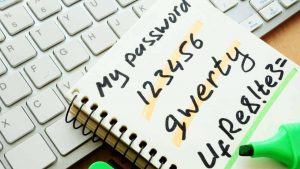 My password
123456
qwerty
L4Re8!te3=